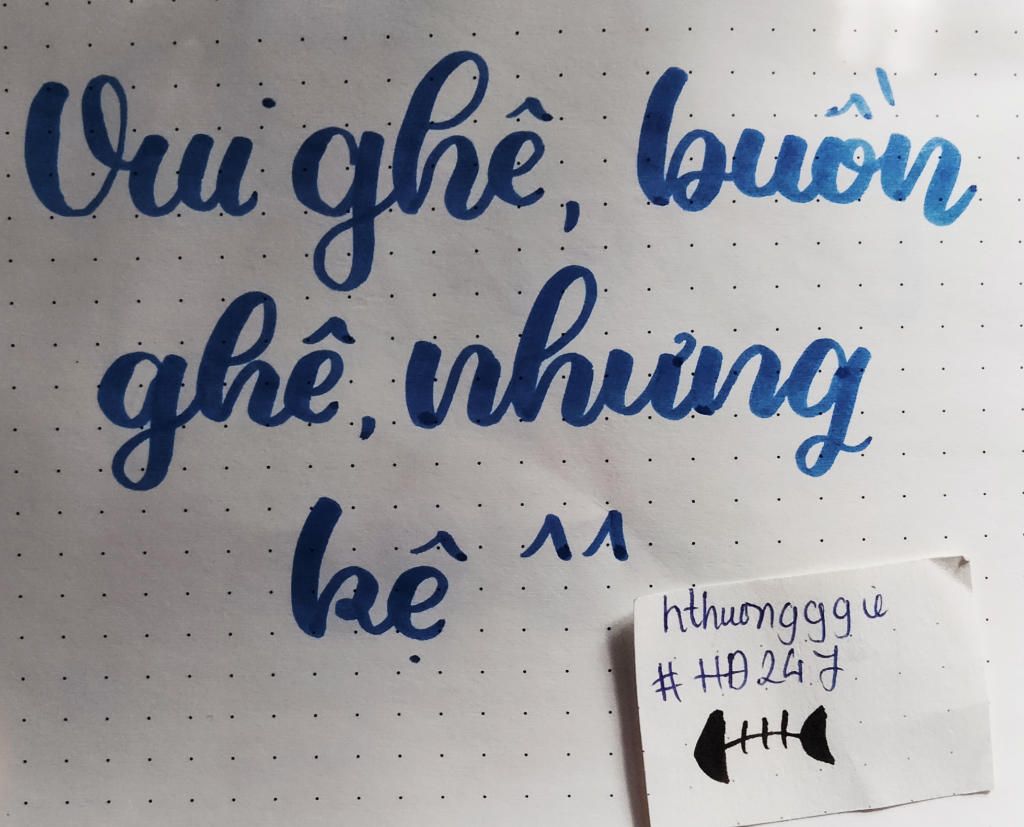 Vui ghê, buồn
ghê, nhưng
kệ ^^
hthuongggie
#HĐ247